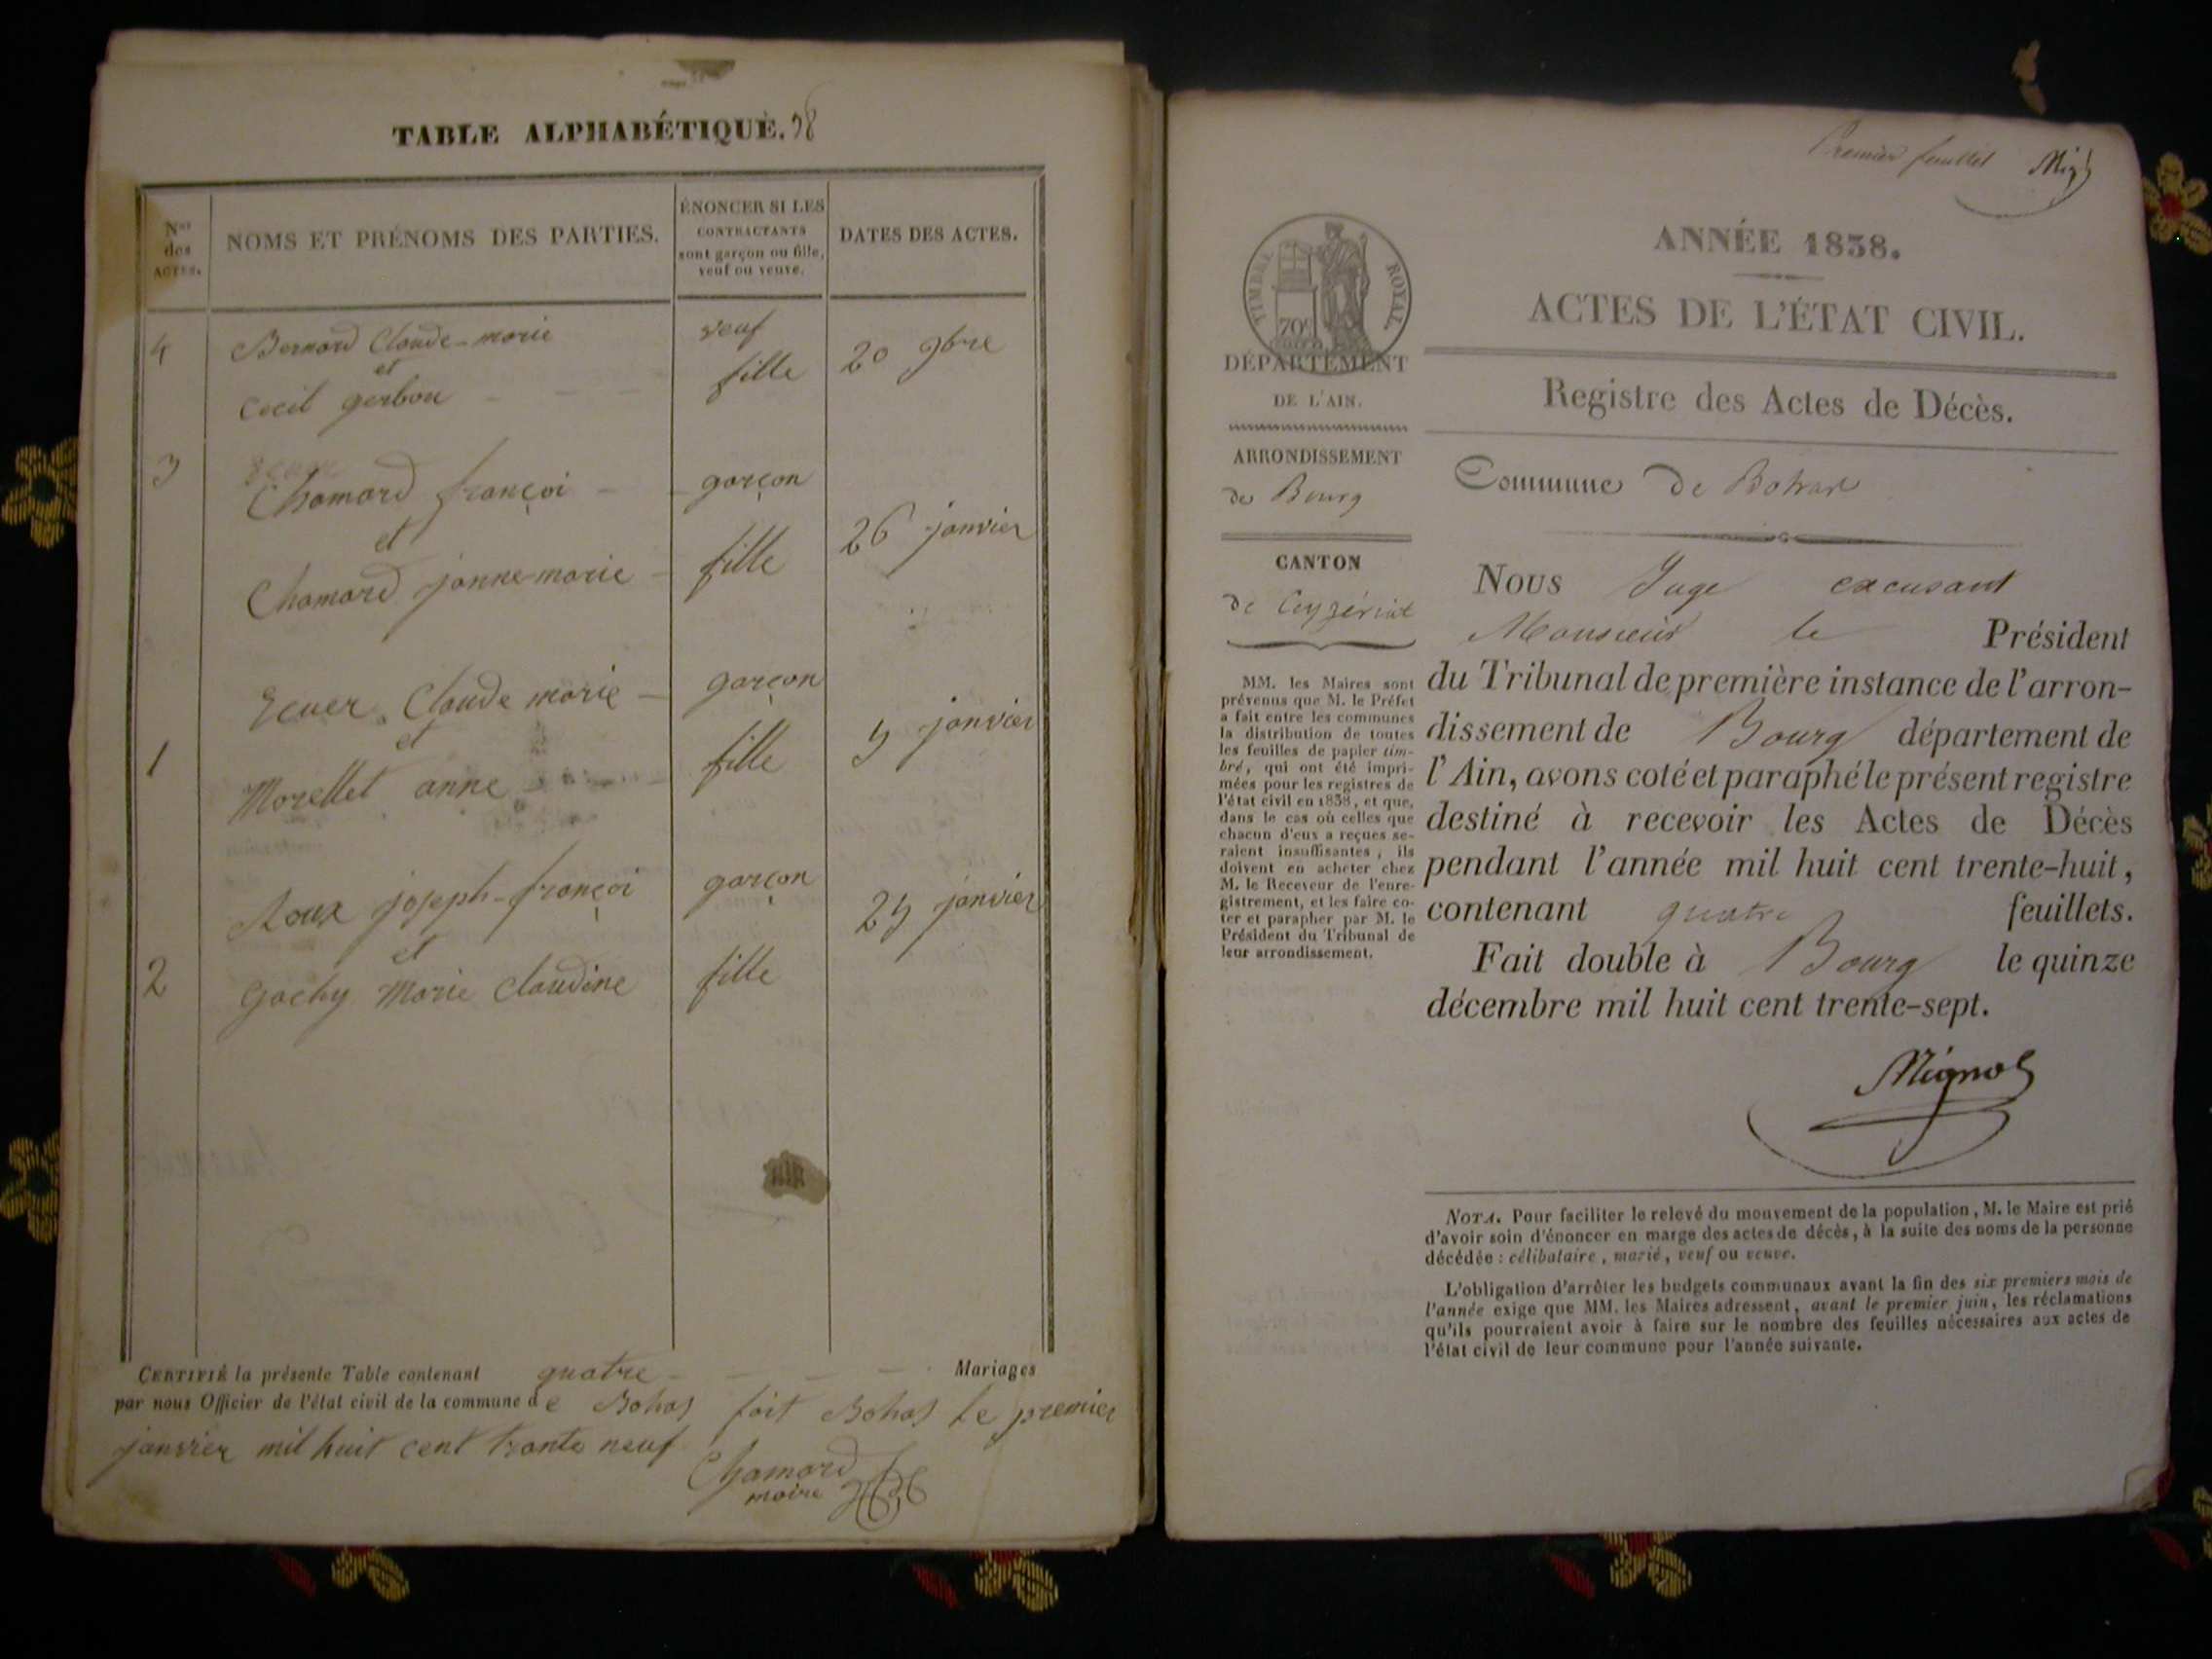 TABLE ALPHABÉTIQUE. 38
Nos des ACTES.
NOMS ET PRÉNOMS DES PARTIES.
ÉNONCER SI LES
CONTRACTANTS
sont garçon ou fille,
veuf ou veuve.
DATES DES ACTES.
4 Bernard Claude-marie veuf
et
Cecil gerbou fille 20 9bre
3 Chamard françoi garçon
et
Chamard janne-marie fille 26 janvier
Ecuer Claude marie garçon
et
1 Morellet anne fille 5 janvier
Roux joseph-françoi garçon 25 janvier
et
2 Gochy Marie Claudine fille
CERTIFIÉ la présente Table contenant quatre Mariages
par nous Officier de l'état civil de la commune de Bohas fait Bohas le premier
janvier mil huit cent trante neuf
Chamard
maire
Premier feuillet Mig
TIMBRE ROYAL
70c
ANNÉE 1838.
ACTES DE L'ÉTAT CIVIL.
Registre des Actes de Décès.
DÉPARTEMENT
DE L'AIN.
ARRONDISSEMENT
de Bourg
CANTON
de Ceyzériat
MM. les Maires sont
prévenus que M. le Préfet
a fait entre les communes
la distribution de toutes
les feuilles de papier tim-
bré, qui ont été impri-
mées pour les registres de
l'état civil en 1838, et que,
dans le cas où celles que
chacun d'eux a reçues se-
raient insuffisantes, ils
doivent en acheter chez
M. le Receveur de l'enre-
gistrement, et les faire co-
ter et parapher par M. le
Président du Tribunal de
leur arrondissement.
Commune de Bohas
NOUS Juge excusant
Monsieur le Président
du Tribunal de première instance de l'arron-
dissement de Bourg département de
l'Ain, avons coté et paraphé le présent registre
destiné à recevoir les Actes de Décès
pendant l'année mil huit cent trente-huit,
contenant quatre feuillets.
Fait double à Bourg le quinze
décembre mil huit cent trente-sept.
Mignot
NOTA. Pour faciliter le relevé du mouvement de la population, M. le Maire est prié
d'avoir soin d'énoncer en marge des actes de décès, à la suite des noms de la personne
décédée : célibataire, marié, veuf ou veuve.
L'obligation d'arrêter les budgets communaux avant la fin des six premiers mois de
l'année exige que MM. les Maires adressent, avant le premier juin, les réclamations
qu'ils pourraient avoir à faire sur le nombre des feuilles nécessaires aux actes de
l'état civil de leur commune pour l'année suivante.